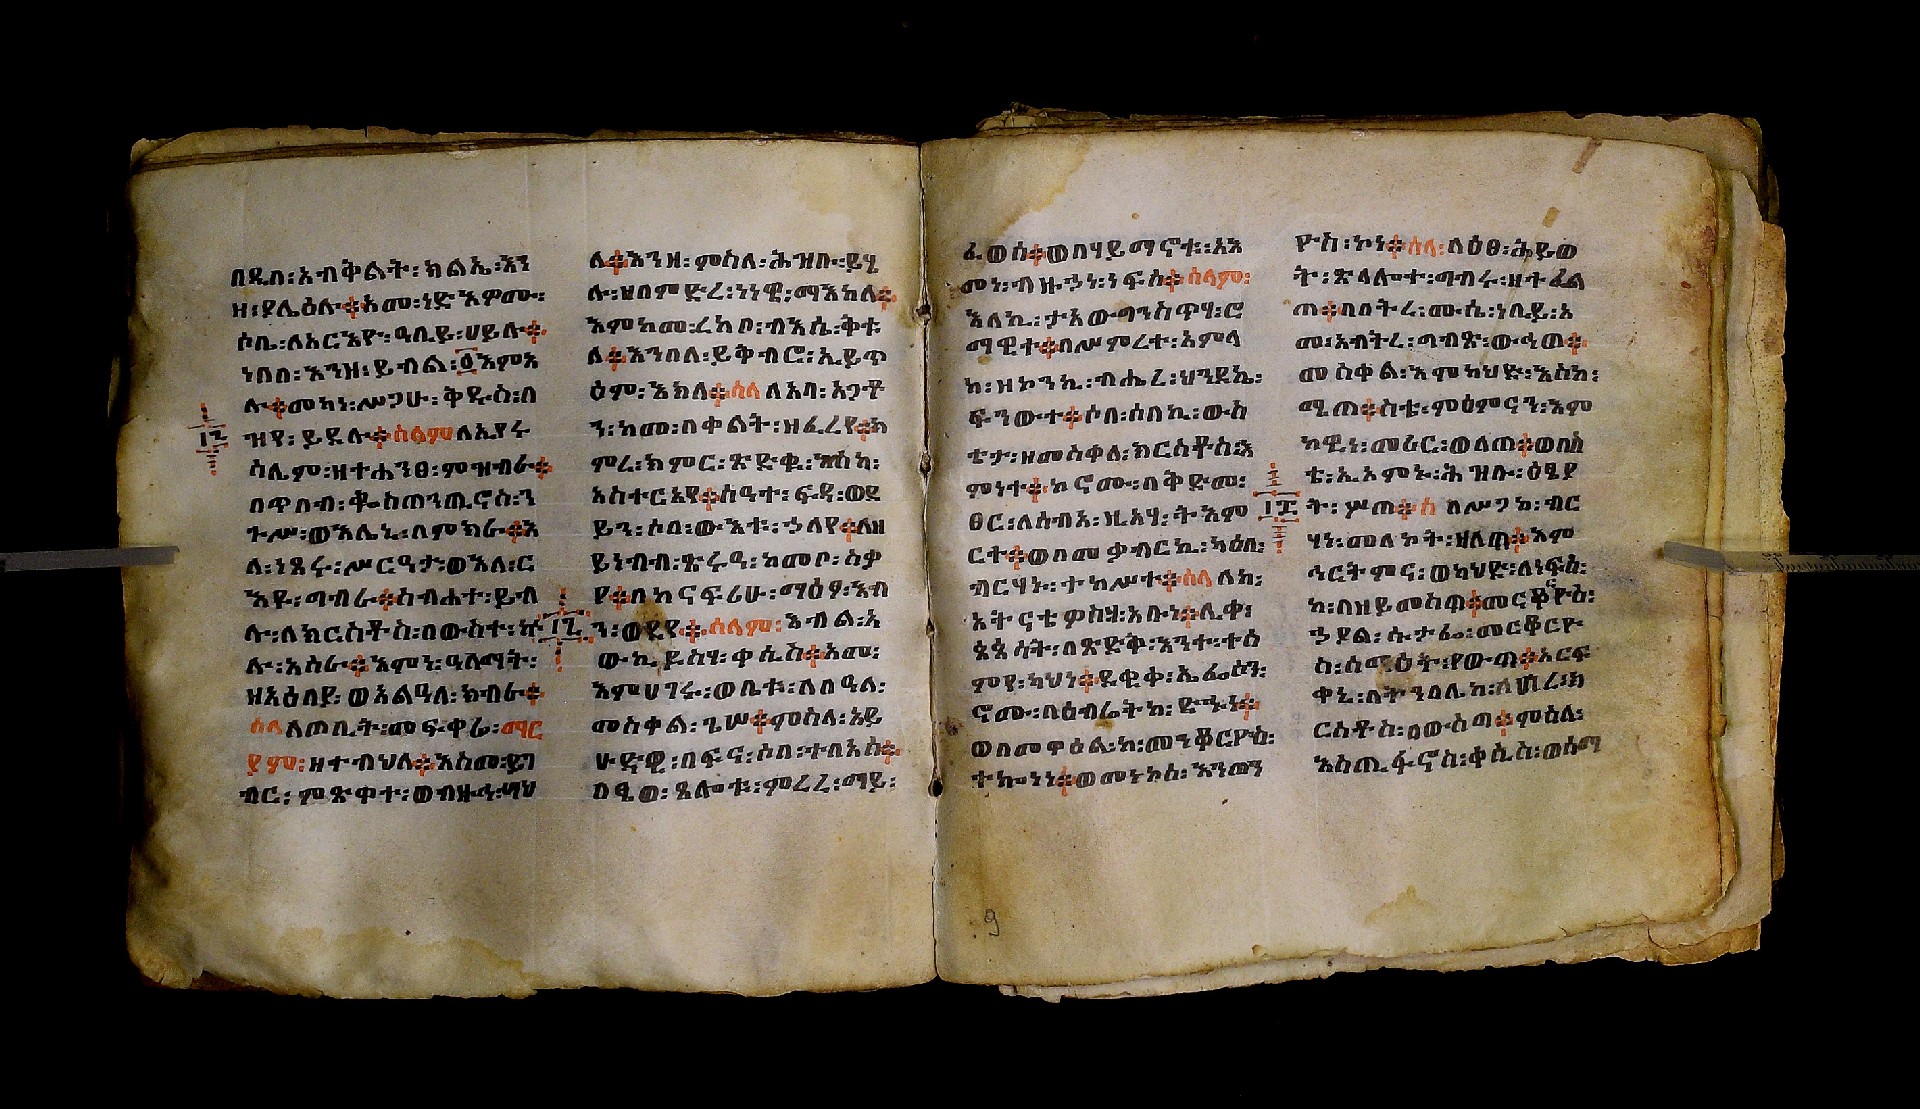 በዲበ፡አብቅልት፡ክልኤ፡እን
ዘ፡ያሌዕሉ፡አመ፡ነድ፡እሞሙ፡
ሶቤ፡ለአርእዮ፡ዓቢይ፡ሀይሉ
ነበበ፡እንዘ፡ይብል፡፩እምአ
ሉ፡መካነ፡ሥጋሁ፡ቅዱስ፡በ
ዝየ፡ይደሉ፡ሰላም፡ለኢየሩ
ሳሌም፡ዘተሐንፀ፡ምዝብራ
በጥበብ፡ቈስጠንጢኖስ፡ን
ጉሥ፡ወእሌኒ፡ለምክራ፡እ
ለ፡ነጸሩ፡ሥርዓታ፡ወእለ፡ር
እዩ፡ግብራ፡ስብሐተ፡ይብ
ሉ፡ለክርስቶስ፡በውስተ፡ኵ
ሉ፡አስራ፡እምነ፡ዓለማት፡
ዘአዕበይ፡ወእልዓለ፡ክብራ
ሰላ፡ለጠቢት፡መፍቀሬ፡ማር
ያም፡ዘተብህለ፡እስመ፡ይገ
ብር፡ምጽዋተ፡ወብዙኃ፡ሣህ
ለ፡እንዘ፡ምስለ፡ሕዝቡ፡ይሄ
ሉ፡ዘበምድረ፡ነነዌ፡ማእከለ
እምከመ፡ረከቦ፡ብእሴ፡ቅቱ
ለ፡እንበለ፡ይቅብሮ፡ኢይጥ
ዕም፡እክለ፡ሰላ፡ለአባ፡አጋቶ
ን፡ከመ፡በቀልት፡ዘፈረየ፡አ
ምረ፡ክምር፡ጽድቁ፡እስከ፡
አስተርአየ፡ሰዓተ፡ፍዳ፡ወደ
ይን፡ሶበ፡ውእቱ፡ኃለየ፡ለዘ
ይነብብ፡ጽሩዓ፡ከመቦ፡ስቃ
የ፡በከናፍሪሁ፡ማዕፆ፡እብ
ን፡ወደየ፡ሰላም፡እብል፡አ
ውኪይስሃ፡ቀሲስ፡አመ፡
እምሀገሩ፡ወቤቱ፡ለበዓለ፡
መስቀል፡ጌሠ፡ምስለ፡አይ
ሁዳዊ፡በፍና፡ሶበ፡ተበአሰ
በዔወ፡ጸሎቱ፡ምረረ፡ማይ፡
ፈወሰ፡ወበሃይማኖቱ፡አአ
መነ፡ብዙኃነ፡ነፍሰ፡ሰላም፡
እለኪ፡ታአውግንስጥሃ፡ሮ
ማዊተ፡በሥምረተ፡አምላ
ክ፡ዘኮንኪ፡ብሔረ፡ህንደኬ፡
ፍንውተ፡ሶበ፡ሰበኪ፡ውስ
ቴታ፡ዘመስቀለ፡ክርስቶስ፡እ
ምነተ፡ከሮሙ፡በቅድመ፡
ፀር፡ለሰብአ፡ዚአሃ፡ትእም
ርተ፡ወበመቃብርኪ፡ካዕበ፡
ብርሃኑ፡ተከሥተ፡ሰላ፡ለከ፡
አትናቴዎስሃ፡አቡነ፡ሊቀ፡
ጳጳሳት፡በጽድቅ፡አንተ፡ተሰ
ምየ፡ካህነ፡ደቂቀ፡ኤፌሶን፡
ሮሙ፡በዕብሬትከ፡ድኅነ
ወበመዋዕልከ፡መንቆርዮስ፡
ተኰነነ፡ወመነኮሰ፡እንጦን
ዮስ፡ኮነ፡ሰላ፡ለዕፀ፡ሕይወ
ት፡ጽላሎተ፡ግብሩ፡ዘተፈል
ጠ፡በበትረ፡ሙሴ፡ነቢይ፡አ
መ፡አብትረ፡ግብጽ፡ውኂጠ
መስቀል፡እምከህድ፡እስከ፡
ሜጠ፡ስቴ፡ምዕምናን፡እም
ኀዊነ፡መሪር፡ወለጠ፡ወበበ
ቴ፡ኢአምኑ፡ሕዝቡ፡ዕፄያ
ት፡ሦጠ፡ሰ፡ለሥጋከ፡ብር
ሃነ፡መለኮት፡ዘለጠ፡እም
ኅርትምና፡ወካህድ፡ለነፍስ፡
ከ፡በዘይመስጥ፡መርቆዮስ፡
ኃያል፡ሱታፌ፡መርቆርዮ
ስ፡ሰማዕት፡የውጣ፡አርፍ
ቀኒ፡በትንበሌከ፡ለሣህረ፡ክ
ርስቶስ፡በውስጣ፡ምስለ፡
እስጢፋኖስ፡ቀሲስ፡ወሰማ
9